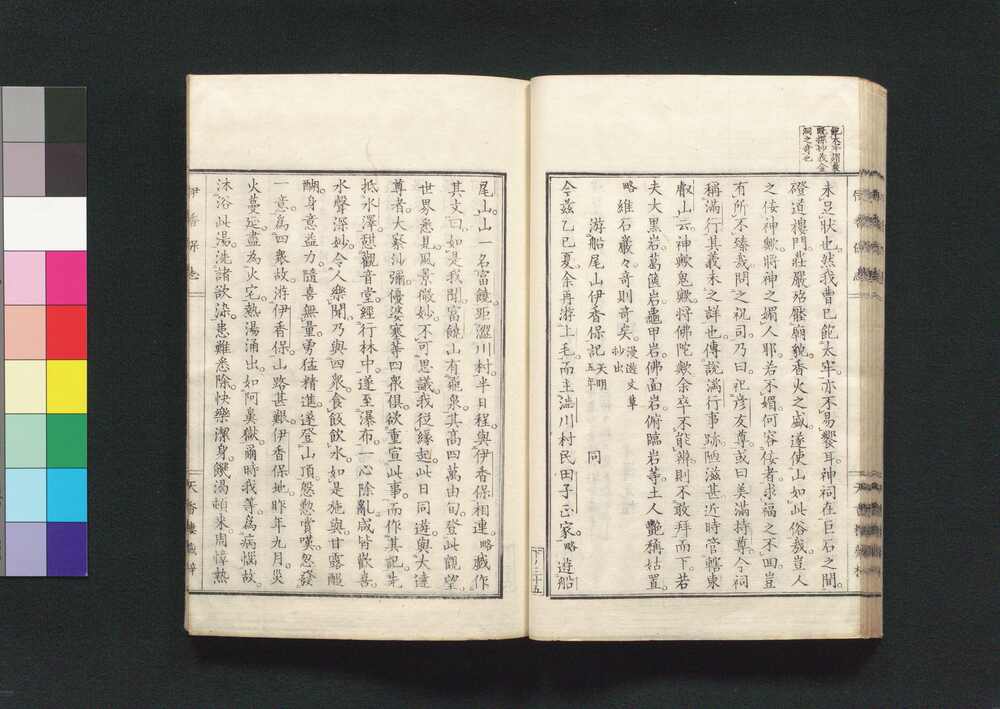 飽太牢譏裝
既探妙義金
洞之奇也
未足狀也。然我曹已飽太牢。亦不易饗耳。神祠在巨石之間。
磴道樓門莊嚴。殆壓廟貌。香火之盛。遂使山如此俗哉。豈人
之佞神歟。將神之媚人耶。若不媚何容佞者。求福之不回。豈
有所不臻哉。問之祝司。乃曰。祀彦友尊。或曰美滿持尊。今祠
稱滿行。其義未之詳也。傳說滿行事跡。陋滋甚。近時管轄東
叡山云。神歟鬼歟。將佛陀歟。余卒不能辨。則不敢拜而下。若
夫大黑岩。葛籠岩。龜甲岩。佛面岩。俯臨岩等。土人艷稱。姑置
略維石巖々。奇則奇矣。漫遊文草抄出
游船尾山伊香保記 天明五年 同
今茲乙巳夏。余再游上毛。而主澁川村民田子正家。略 遊船
下ノ二十五
尾山。山一名富饒。距澀川村半日程。與伊香保相連。略 戲作
其文曰。如是我聞。富饒山有龍泉。其高四萬由旬。登此觀望。
世界悉見。風景微妙。不可思議。我從緣起。此日同遊。與大達
尊者。大察汕彌。優婆塞等四衆俱。欲重宣此事。而作其記。先
抵水澤。憩觀音堂。經行林中。遂至瀑布。一心除亂。咸皆歡喜。
水聲深妙。令人樂聞。乃與四衆食飯飮水。如是施與。甘露醍
醐。身意益力。隨喜無量。勇猛精進。遂登山頂。怱怱賞嘆。忽發
一意。為四衆故。游伊香保。山路甚艱。伊香保地。昨年九月。災
火蔓延。盡為火宅。熱湯涌出。如阿鼻獄。爾時我等。為病惱故。
沐浴此湯。洗諸欲染。患難悉除。快樂潔身。饑渴頓來。周慞熱
伊香保志
天香樓藏梓